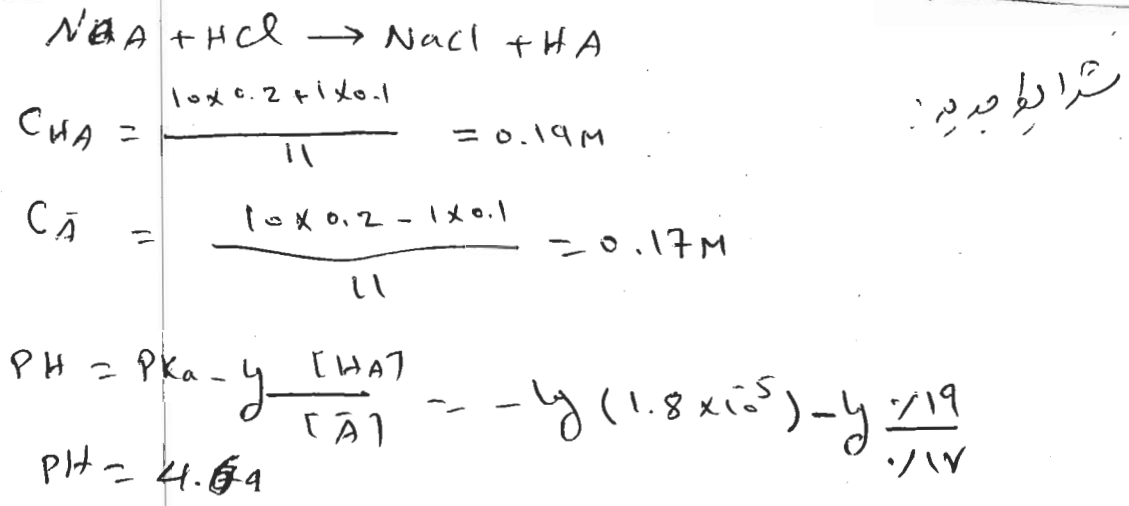 NaA + HCl → NaCl + HA
شرایط جدید:
C_HA = (10 × 0.2 + 1 × 0.1) / 11 = 0.19 M
C_Ā = (10 × 0.2 - 1 × 0.1) / 11 = 0.17 M
PH = PKa - lg [HA] / [Ā] = - lg (1.8 × 10⁻⁵) - lg ۰/۱۹ / ۰/۱۷
PH = 4.69